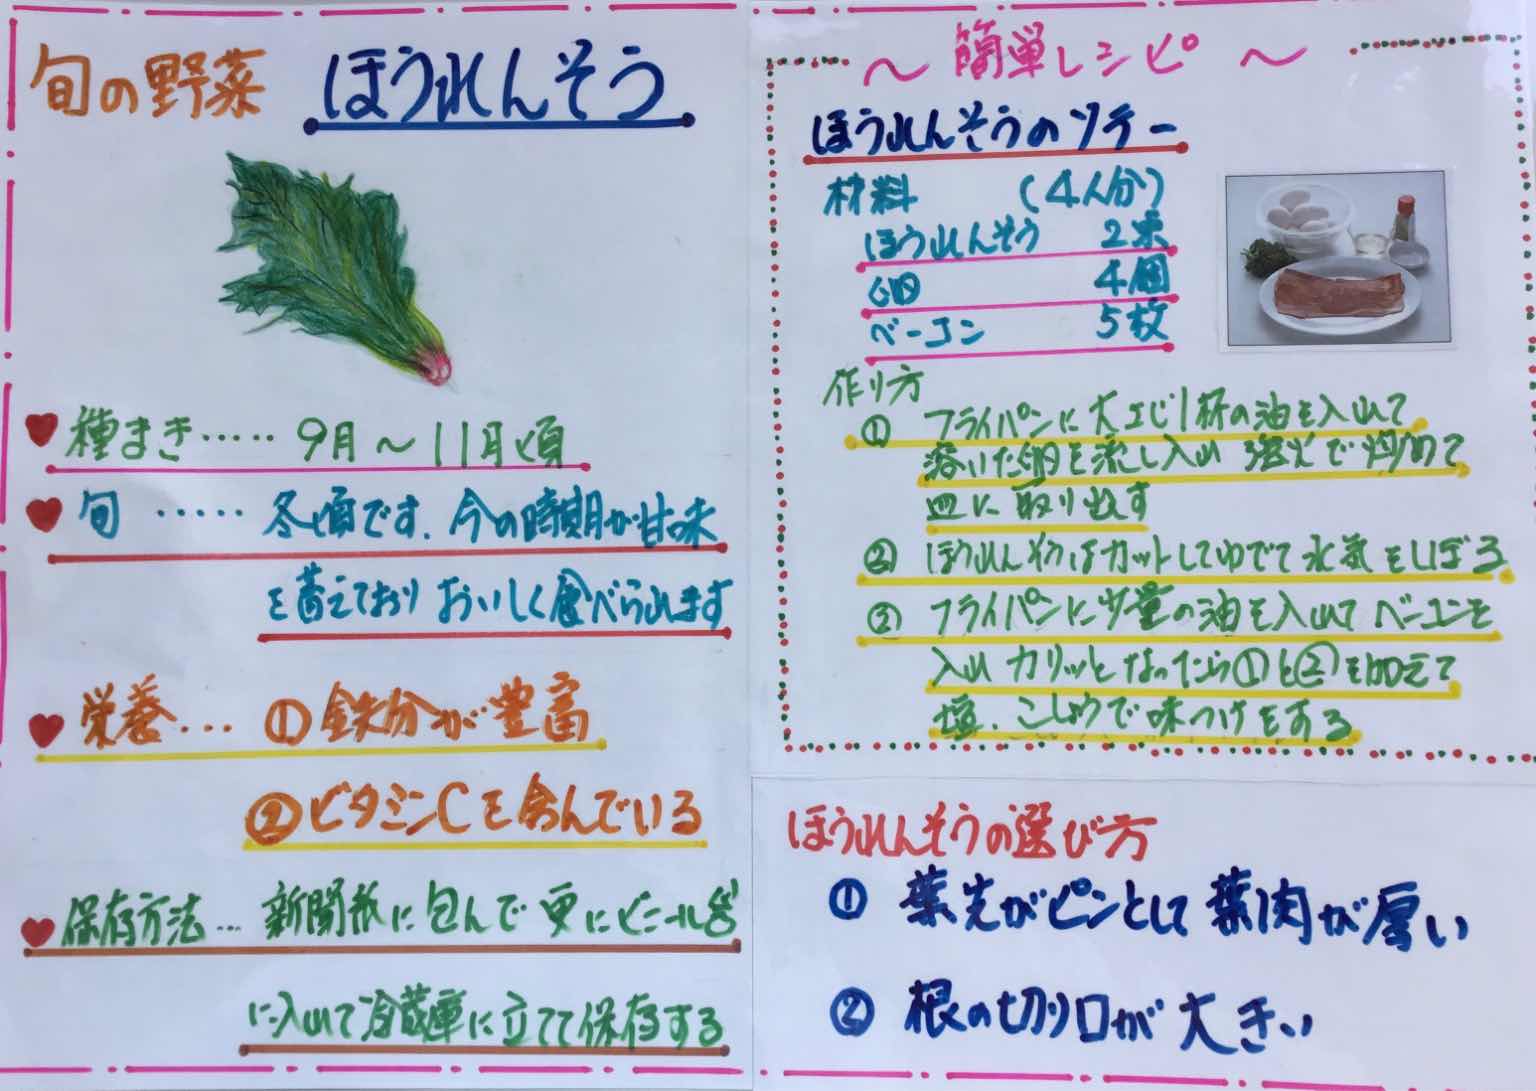 旬の野菜 ほうれんそう
♥ 種まき‥‥‥ 9月～11月頃
♥ 旬 ‥‥‥ 冬頃です.今の時期が甘味
を蓄えており おいしく食べられます
♥ 栄養‥‥ ①鉄分が豊富
②ビタミンCを含んでいる
♥ 保存方法… 新聞紙に包んで更にビニール袋
に入れて冷蔵庫に立てて保存する
～ 簡単レシピ ～
ほうれんそうのソテー
材料 (4人分)
ほうれんそう 2束
卵 4個
ベーコン 5枚
作り方
① フライパンに大さじ1杯の油を入れて
溶いた卵を流し入れ 強火で炒めて
皿に取り出す
② ほうれんそうはカットしてゆでて水気をしぼる
③ フライパンに少量の油を入れてベーコンを
入れ カリッとなったら①と②を加えて
塩.こしょうで味つけをする
ほうれんそうの選び方
① 葉先がピンとして葉肉が厚い
② 根の切り口が大きい